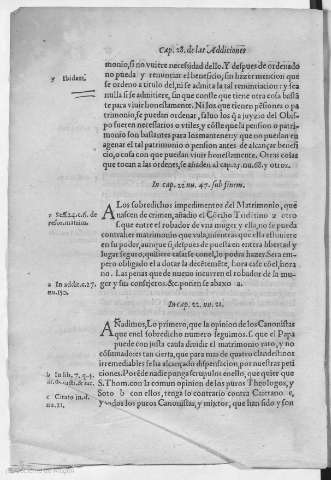 Cap. 28. de las Addiciones
monio, si no vuiere necessidad dello. Y despues de ordenado
y Ibidem.
no pueda y renunciar el beneficio, sin hazer mencion que
se ordeno a titulo del, ni se admita la tal renunciacion: y sea
nulla si se admitiere, sin que conste que tiene otra cosa bastã
te para viuir honestamente. Ni los que tienen pẽsiones o pa
trimonio, se puedan ordenar, saluo los q̃ a juyzio del Obis-
po fueren necessarios o vtiles, y cõste que la pension o patri-
monio son bastantes para los mantener: y que no puedan en
agenar el tal patrimonio o pension antes de alcançar benefi
cio, o cosa con que puedan viuir honestamente. Otras cosas
que tocan a las ordenes, se añaden al cap. 25. nu. 68. y otros.
In cap. 22 nu. 47. sub finem.
A Los sobredichos impedimentos del Matrimonio, que
z Sess. 24. c. 6. de
reformatiõ.
nascen de crimen, añadio el Cõcilio Tridẽtino z otro
que entre el robador de vna muger y ella, no se pueda
contraher matrimonio que vala, mientras que ella estuuiere
en su poder, aunque si, despues de puesta en entera libertad y
lugar seguro, quisiere casarse conel, lo podra hazer. Sera em-
pero obligado el a dotar la decẽtemẽte, hora case cõel, hora
a In addit. c. 27.
nu. 150.
no. Las penas que de nueuo incurren el robador de la mu-
ger y sus consejeros. &c. ponen se abaxo a.
In cap. 22. nu. 21.
AÑadimos, Lo primero, que la opinion de los Canonistas
que enel sobredicho numero seguimos. s. que el Papa
puede con justa causa diuidir el matrimonio rato, y no
cõsumado es tan cierta, que para mas de quatro clandestinos
irremediables se ha alcançado dispensacion por nuestras peti
b In lib. 7. q. 4.
ciones. Por ẽde nadie ponga scrupulos enello, que quier que
S. Thom. con la comun opinion de los puros Theologos, y
c Citato in. d.
nu. 21.
Soto b con ellos, tenga lo contrario contra Caietano c,
y todos los puros Canonistas, y mixtos, que han sido y son